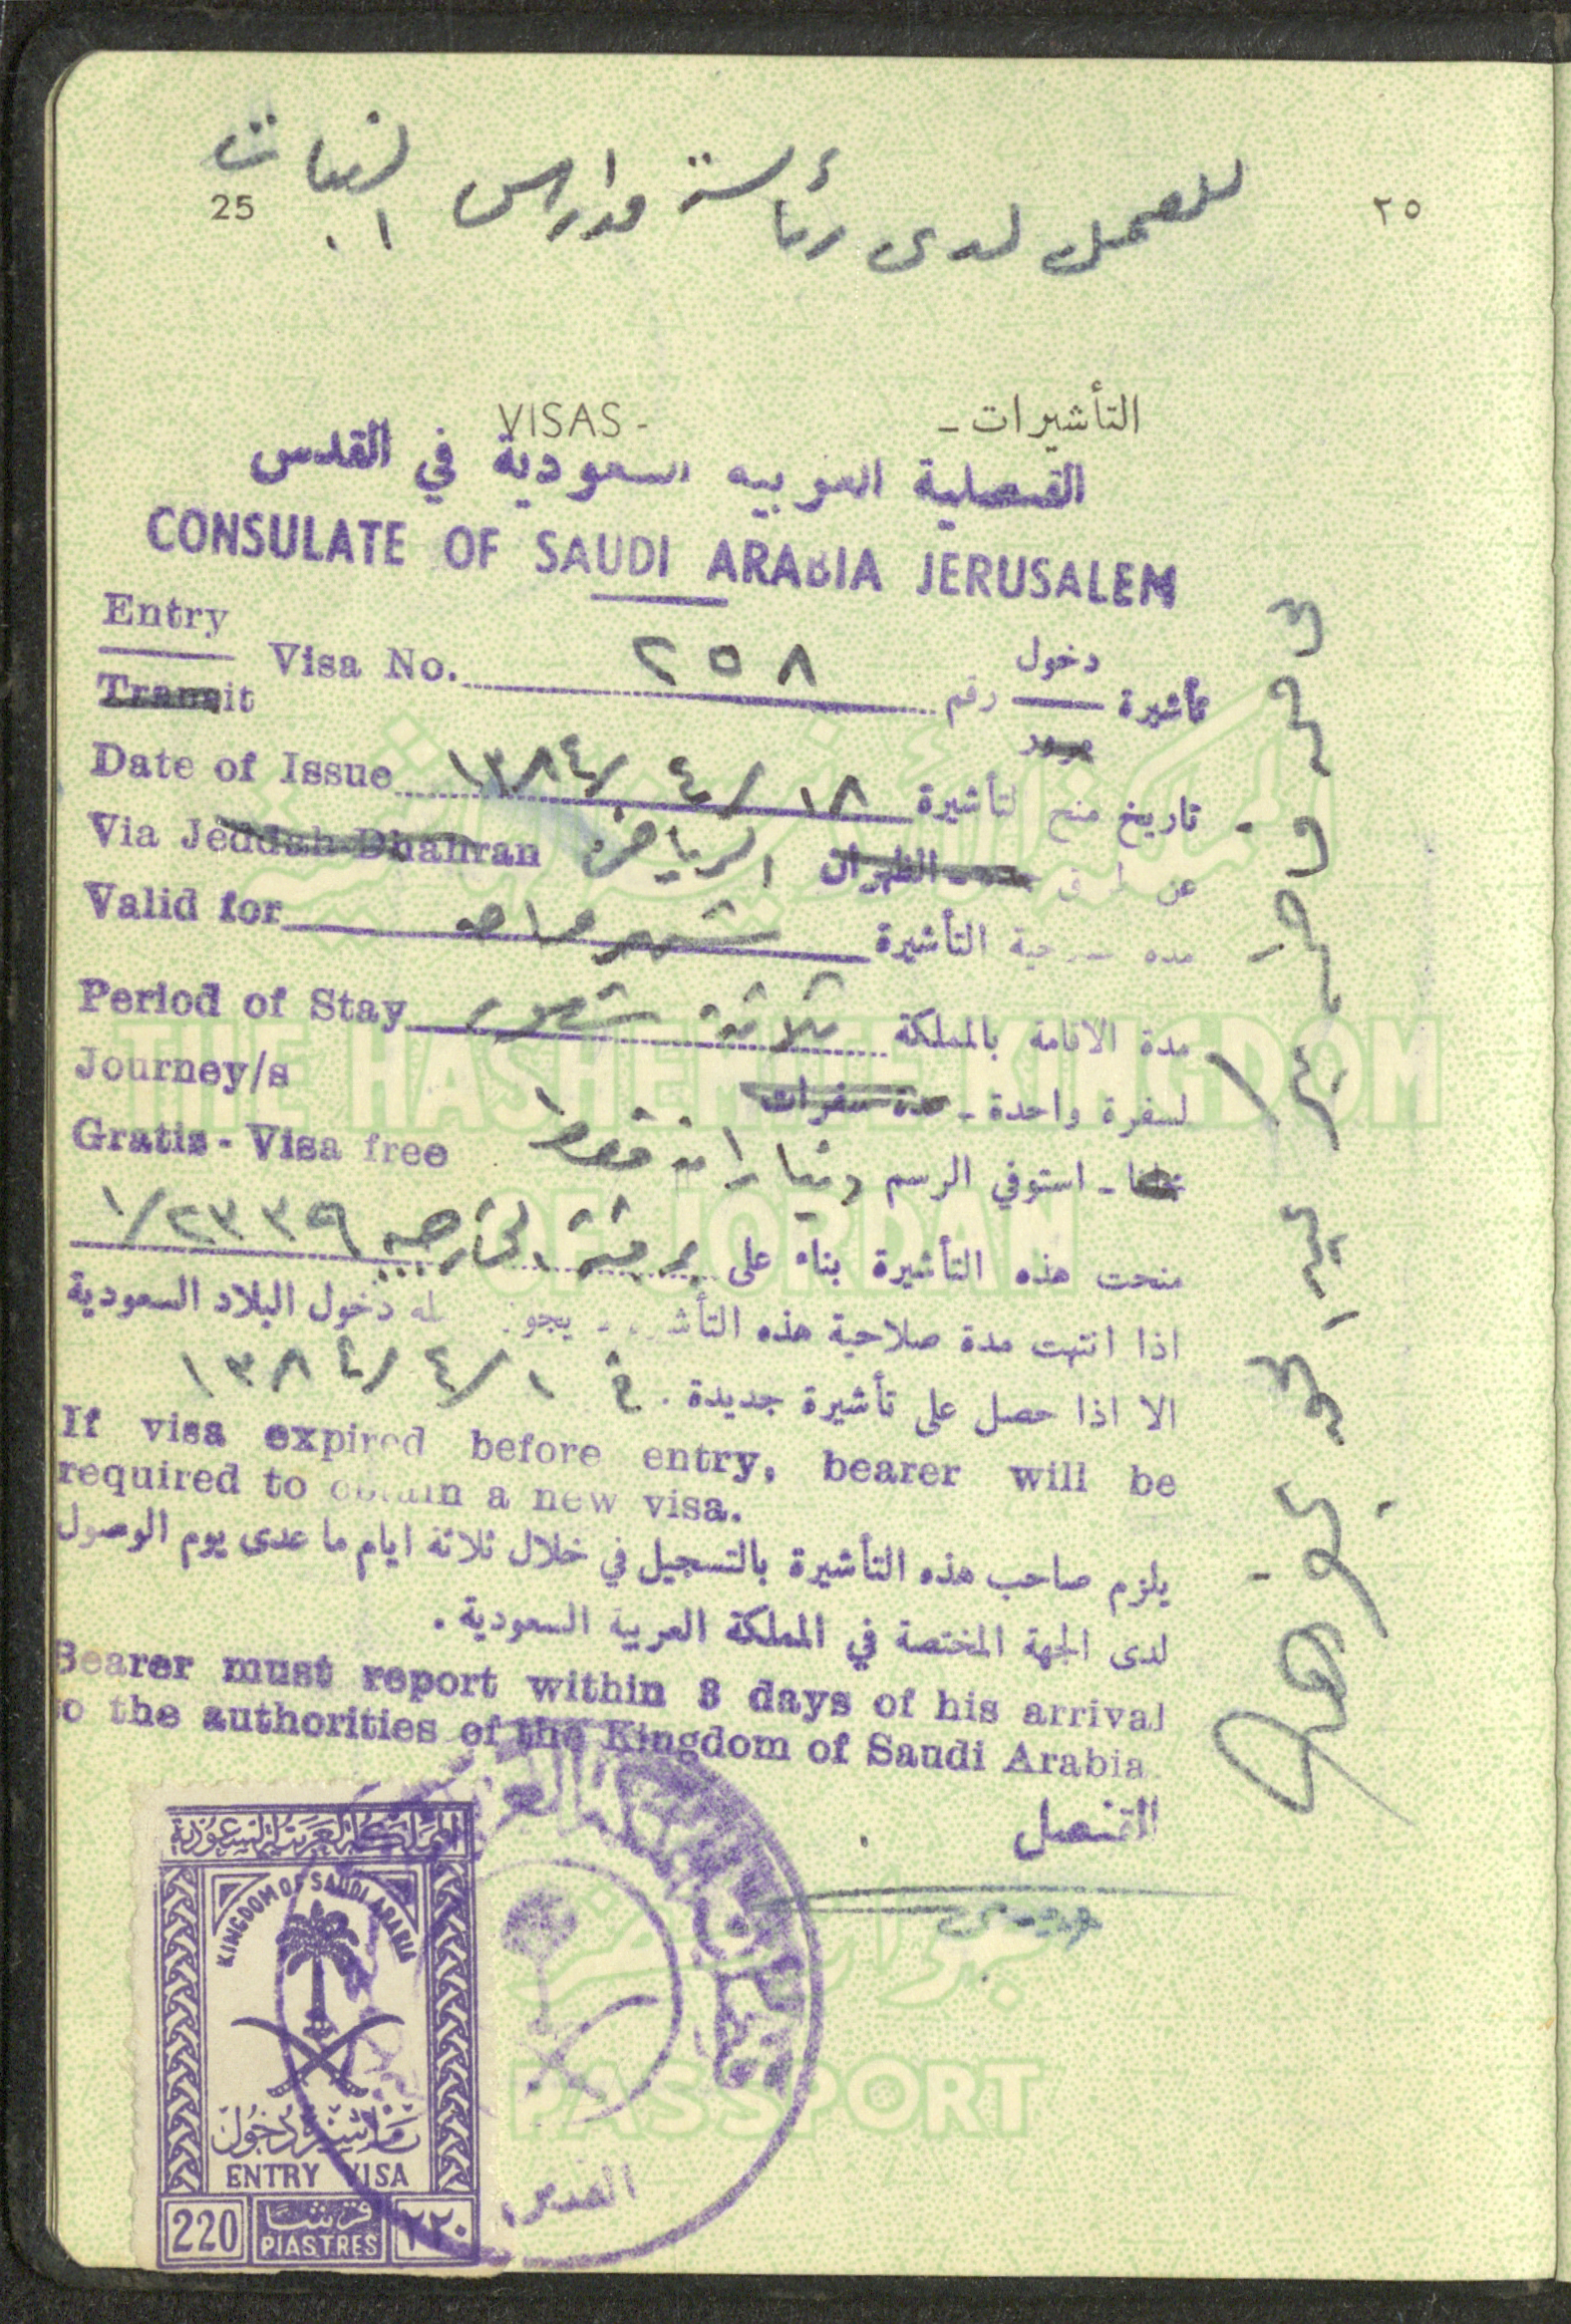 للعمل لدى رئاسة مدارس البنات
25
٢٥
VISAS -
التأشيرات -
القنصلية العربيه السعودية في القدس
CONSULATE OF SAUDI ARABIA JERUSALEM
Entry
Transit
Visa No. ٢٥٨
تأشيرة دخول
مرور
رقم
Date of Issue ١٨/٤/١٣٨٤ تاريخ منح التأشيرة
Via Jeddah-Dhahran الرياض الظهران عن طريق
Valid for شهر واحد مدة صلاحية التأشيرة
Period of Stay ثلاثة شهور مدة الاقامة بالمملكة
Journey/s لسفرة واحدة - عدة سفرات
Gratis - Visa free - استوفي الرسم ديناران فقط
منحت هذه التأشيرة بناء على برقية الخارجيه ١/٢٣٣٩
اذا انتهت مدة صلاحية هذه التأشيرة يجوز له دخول البلاد السعودية
الا اذا حصل على تأشيرة جديدة . في ١/٤/١٣٨٤
If visa expired before entry, bearer will be
required to obtain a new visa.
يلزم صاحب هذه التأشيرة بالتسجيل في خلال ثلاثة ايام ما عدى يوم الوصول
لدى الجهة المختصة في المملكة العربية السعودية .
Bearer must report within 3 days of his arrival
to the authorities of the Kingdom of Saudi Arabia
القنصل
المملكة العربية السعودية
KINGDOM OF SAUDI ARABIA
تأشيرة دخول
ENTRY VISA
220
قرشا
PIASTRES
٢٢٠
القدس
المملكة الأردنية الهاشمية
THE HASHEMITE KINGDOM
OF JORDAN
جواز سفر
PASSPORT